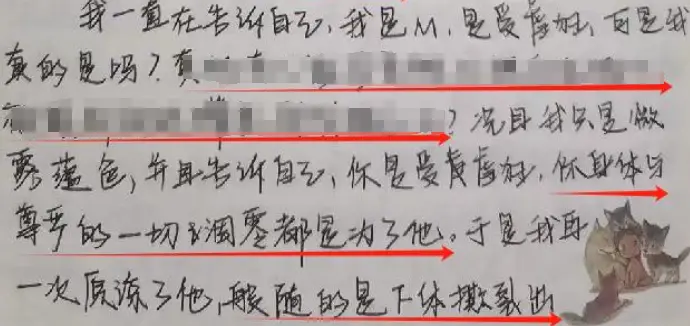 我一直在告诉自己，我是M，是受虐狂，可是我
真的是吗？真
？况且我只是做
露蕴色，并且告诉自己，你是受虐狂，你身体与
尊严的一切凋零都是为了他。于是我再
一次原谅了他，随的是下体撕裂出